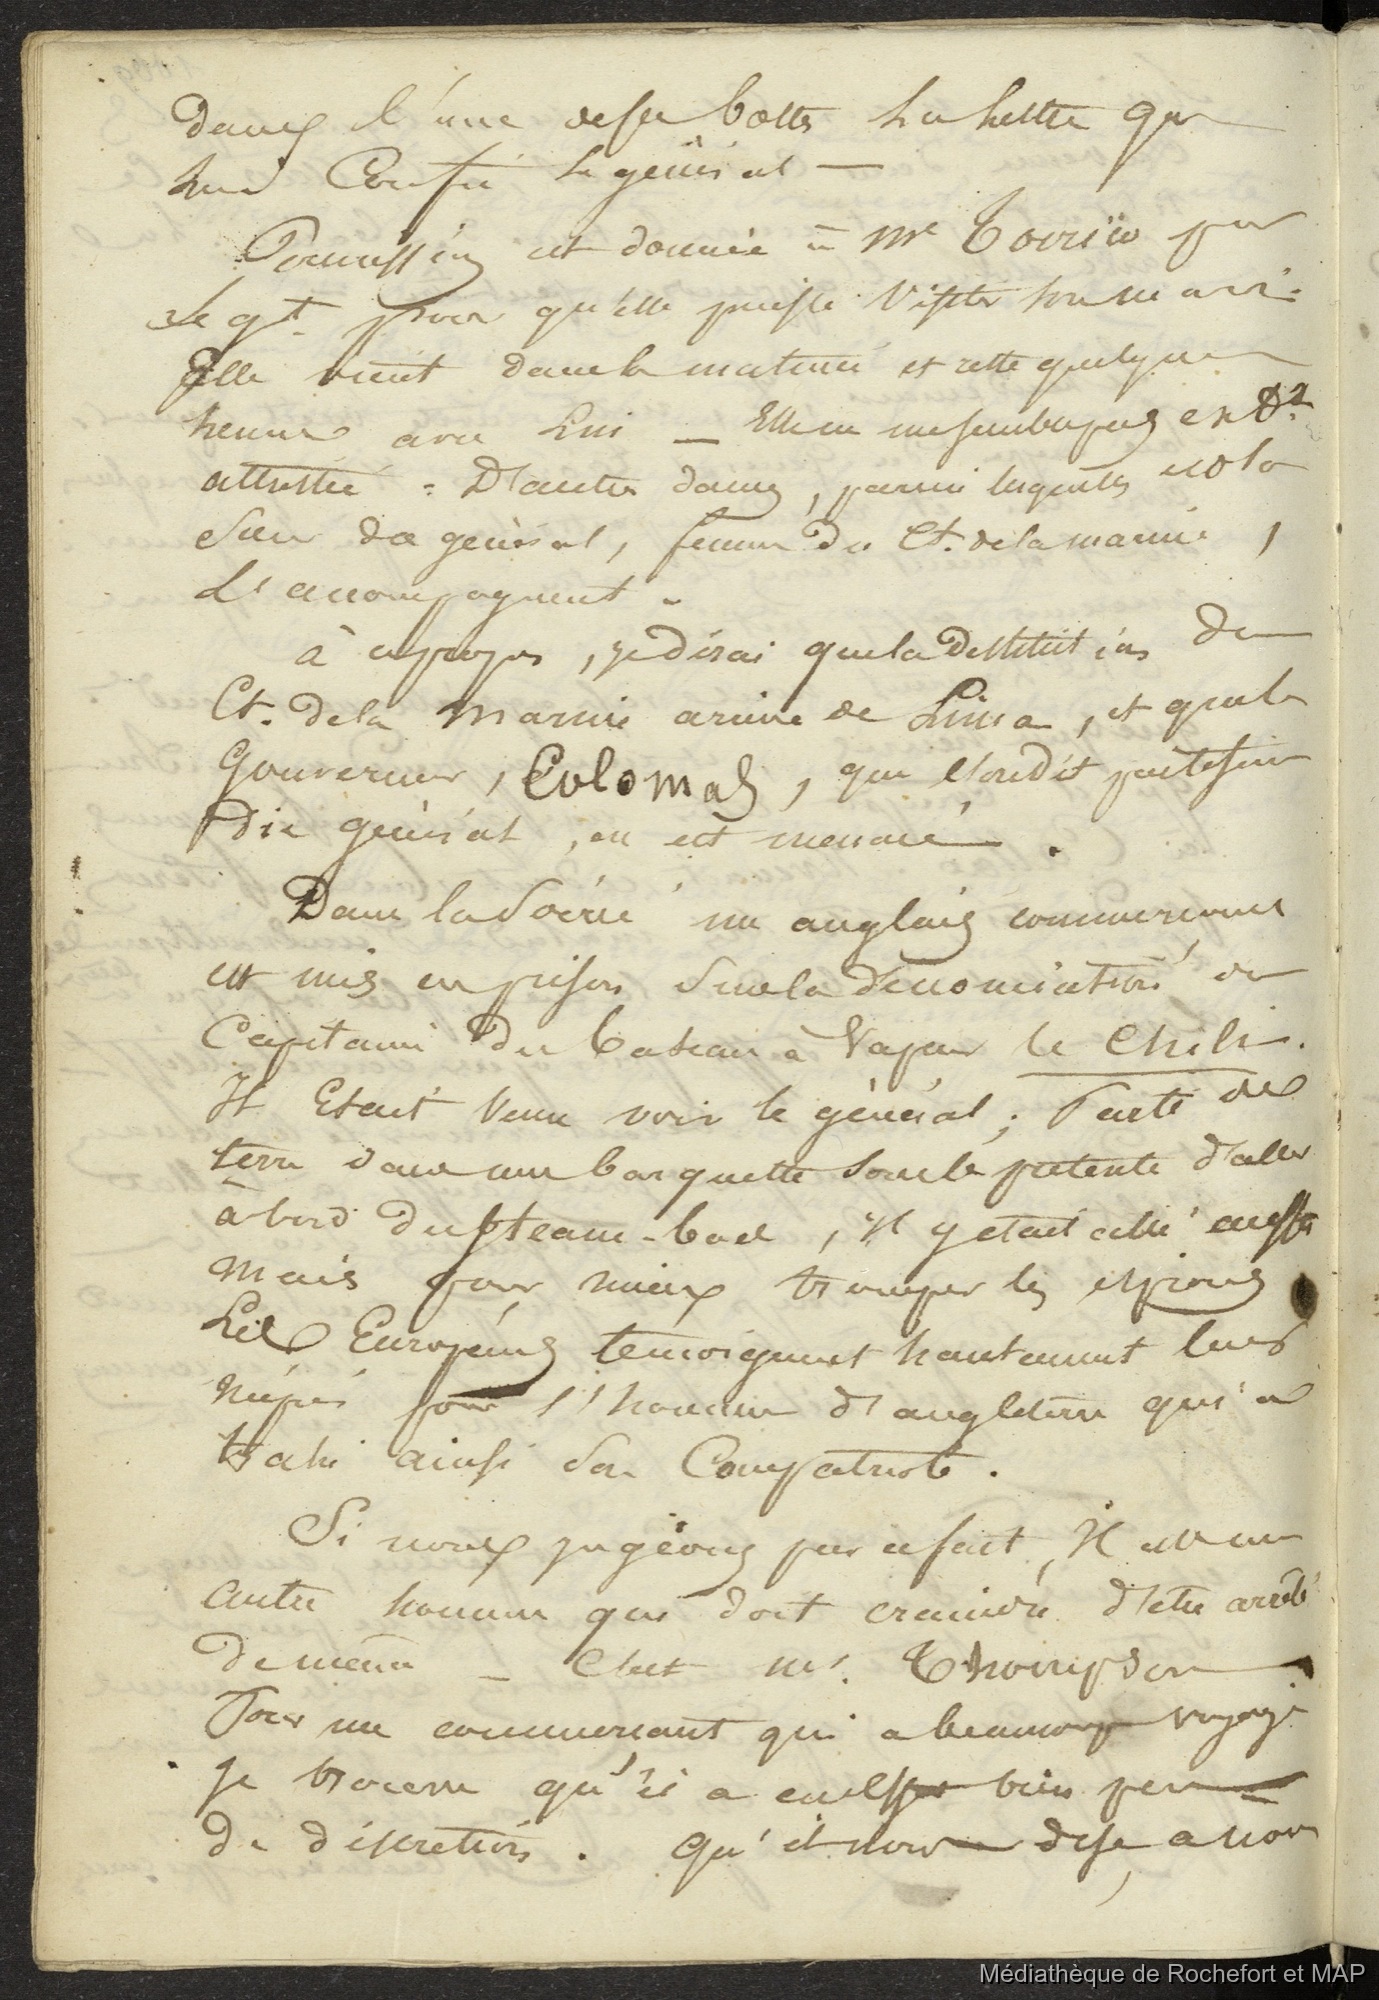 dans l'une de ses bottes la lettre que
lui Confie le général —
Permission est donnée à Me Torrico par
le gt. pour qu'elle puisse visiter son mari.
Elle vient dans la matinée et reste quelques
heures avec Lui — Elle ne me semble pas
attristée. D'autres dames, parmi lesquelles est la
Sœur du général, femme du Ct. de la marine,
L'accompagnent.
à ce propos, je dirai que la Destitution du
Ct. de la marine arrive de Lima, et que le
Gouverneur, Colomas, que l'on dit partisan
du général, en est menacé.
Dans la Soirée un anglais commerçant
est mis en prison Sur la Dénonciation du
Capitaine du bateau à Vapeur le Chili.
Il Etait Venu voir le général; Parti de
terre dans une barquette sous le prétexte d'aller
à bord du steam-boat, il y était allé aussi
mais pour mieux tromper les espions
Les Européens témoignent hautement leur
mépris pour l'homme d'angleterre qui a
trahi ainsi Son Compatriote.
Si nous jugeons par ce fait, Il est un
autre homme qui doit craindre d'être arrêté
de même — C'est Mr. Thompson
Pour un commerçant qui a beaucoup voyagé
je trouve qu'il a bien peu
de discrétion. Qu'il nous dise, a nous